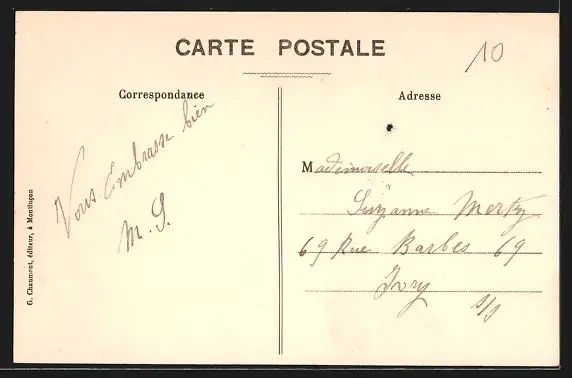 CARTE POSTALE
10
Correspondance
Adresse
Vous Embrasse bien
M. S.
Mademoiselle
Suzanne Mertz
69 Rue Barbes 69
Ivry
s/s
G. Chaumont, éditeur, à Montluçon